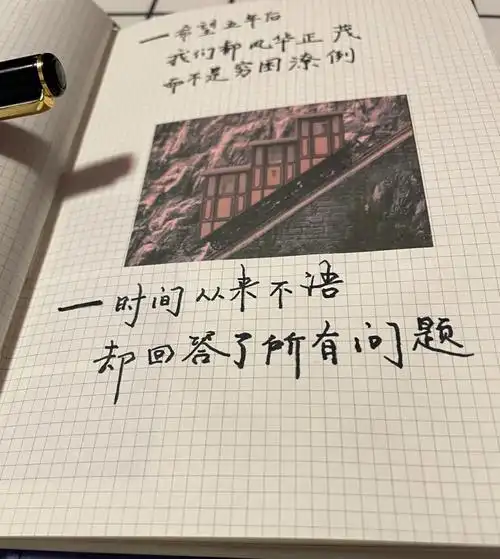 一希望五年后
我们都风华正茂
而不是穷困潦倒
一时间从来不语
却回答了所有问题